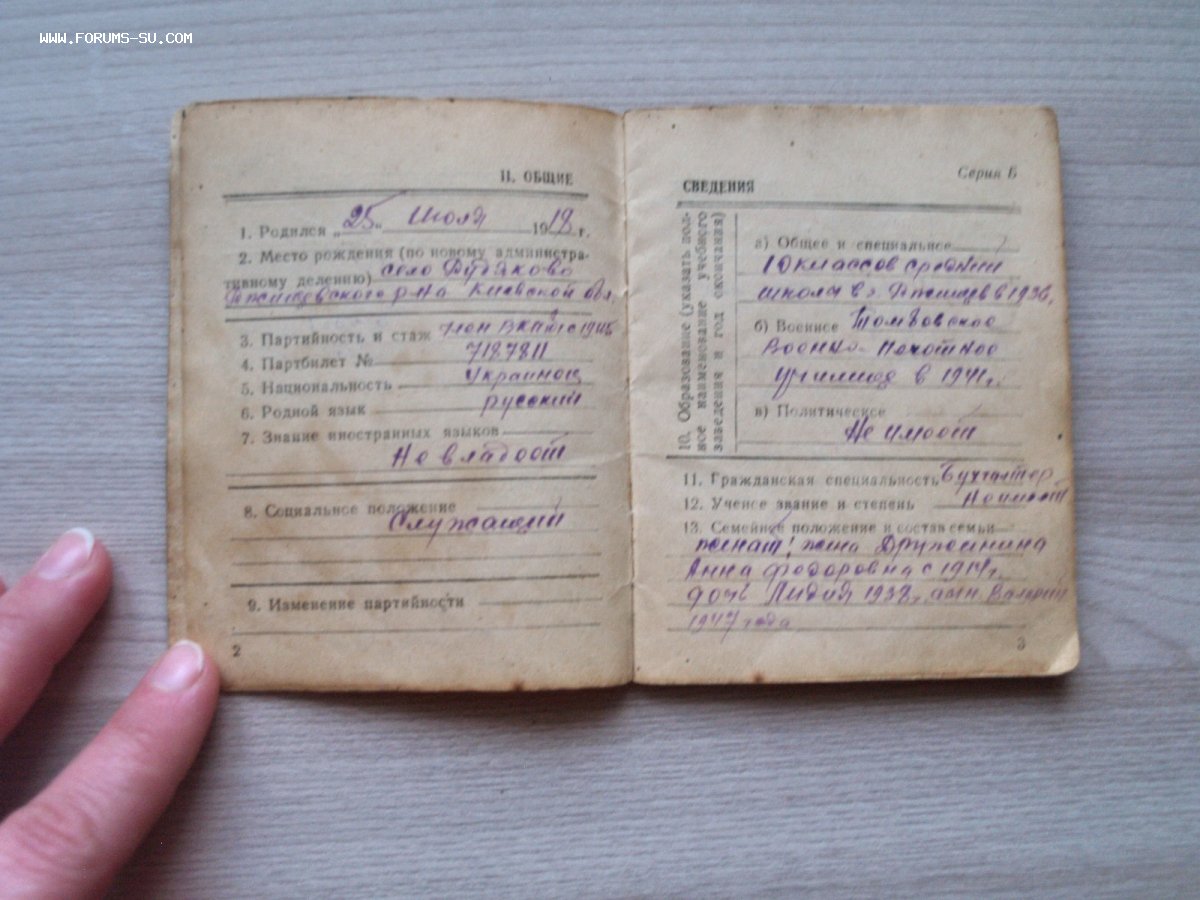 www.FORUMS-SU.COM
II. ОБЩИЕ
1. Родился „25“ Июля 1918 г.
2. Место рождения (по новому администра-
тивному делению) село Дудяково
Ржищевского р-на Киевской обл.
3. Партийность и стаж член ВКП(б) с
4. Партбилет №
5. Национальность Украинец
6. Родной язык русский
7. Знание иностранных языков
Не владеет
8. Социальное положение
Служащий
9. Изменение партийности
2
Серия Б
СВЕДЕНИЯ
10. Образование (указать пол-
ное наименование учебного
заведения и год окончания)
а) Общее и специальное
10 классов средней
школы в г. Ржищев в 1936,
б) Военное Тамбовское
Военно-Пехотное
училище в 1941г.
в) Политическое
Не имеет
11. Гражданская специальность Бухгалтер
12. Ученое звание и степень Не имеет
13. Семейное положение и состав семьи
женат: жена
Анна Федоровна с
дочь Лидия 1938, сын Валерий
1947 года
3